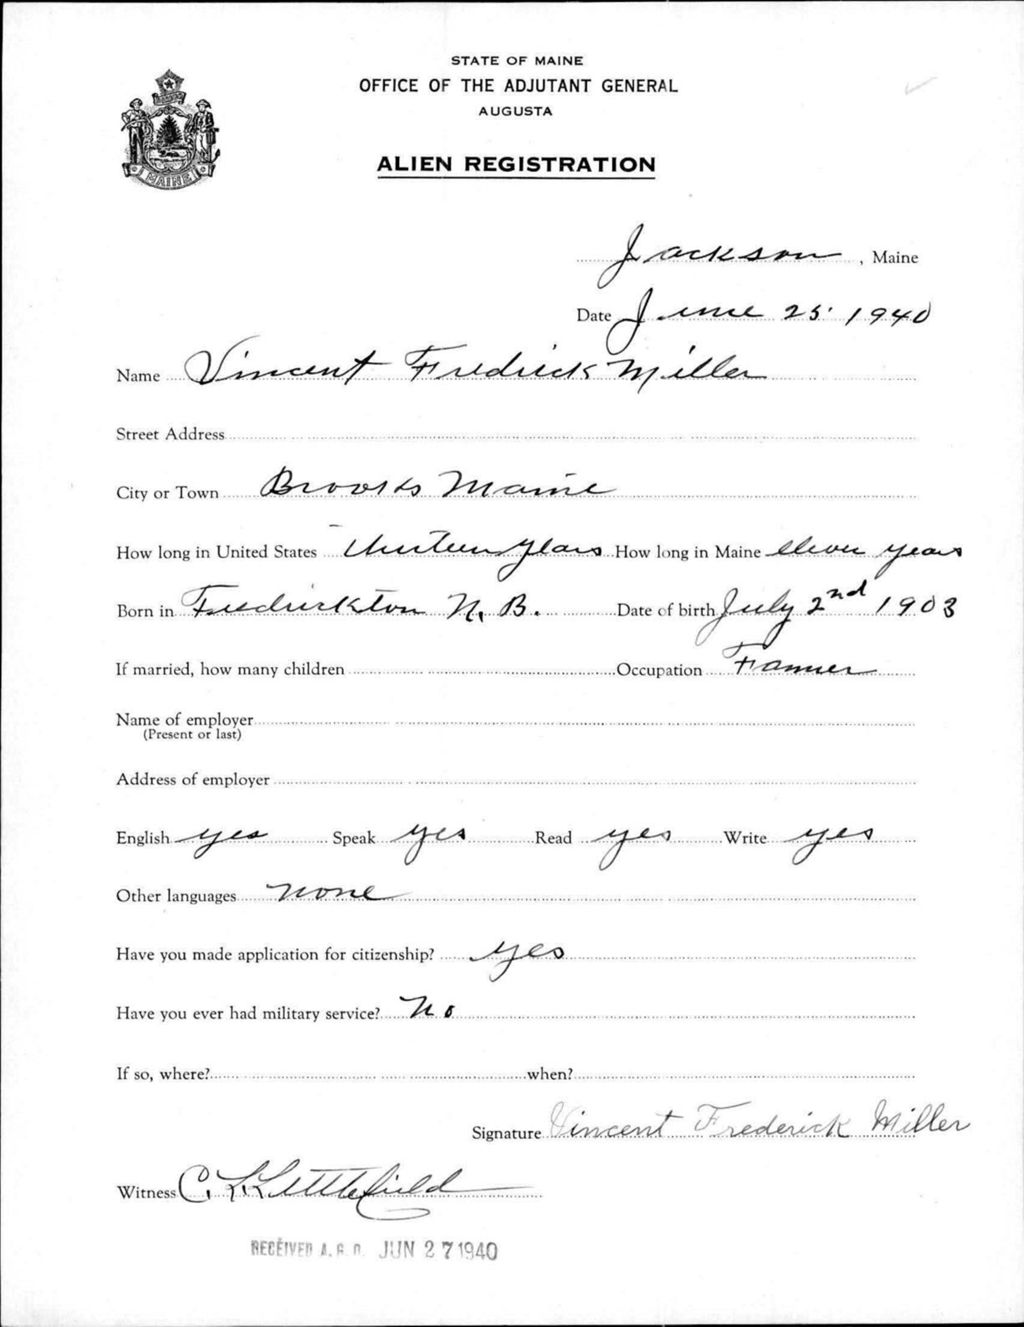 STATE OF MAINE
OFFICE OF THE ADJUTANT GENERAL
AUGUSTA
ALIEN REGISTRATION
MAINE
Jackson, Maine
Date June 25. 1940
Name Vincent Fredrick Miller
Street Address
City or Town Brooks Maine
How long in United States thirteen years How long in Maine eleven years
Born in Fredrickton N. B. Date of birth July 2nd 1903
If married, how many children Occupation Farmer
Name of employer
(Present or last)
Address of employer
English yes Speak yes Read yes Write yes
Other languages none
Have you made application for citizenship? yes
Have you ever had military service? No
If so, where? when?
Signature Vincent Frederick Miller
Witness C. L. Littlefield
RECEIVED A. G. O. JUN 27 1940